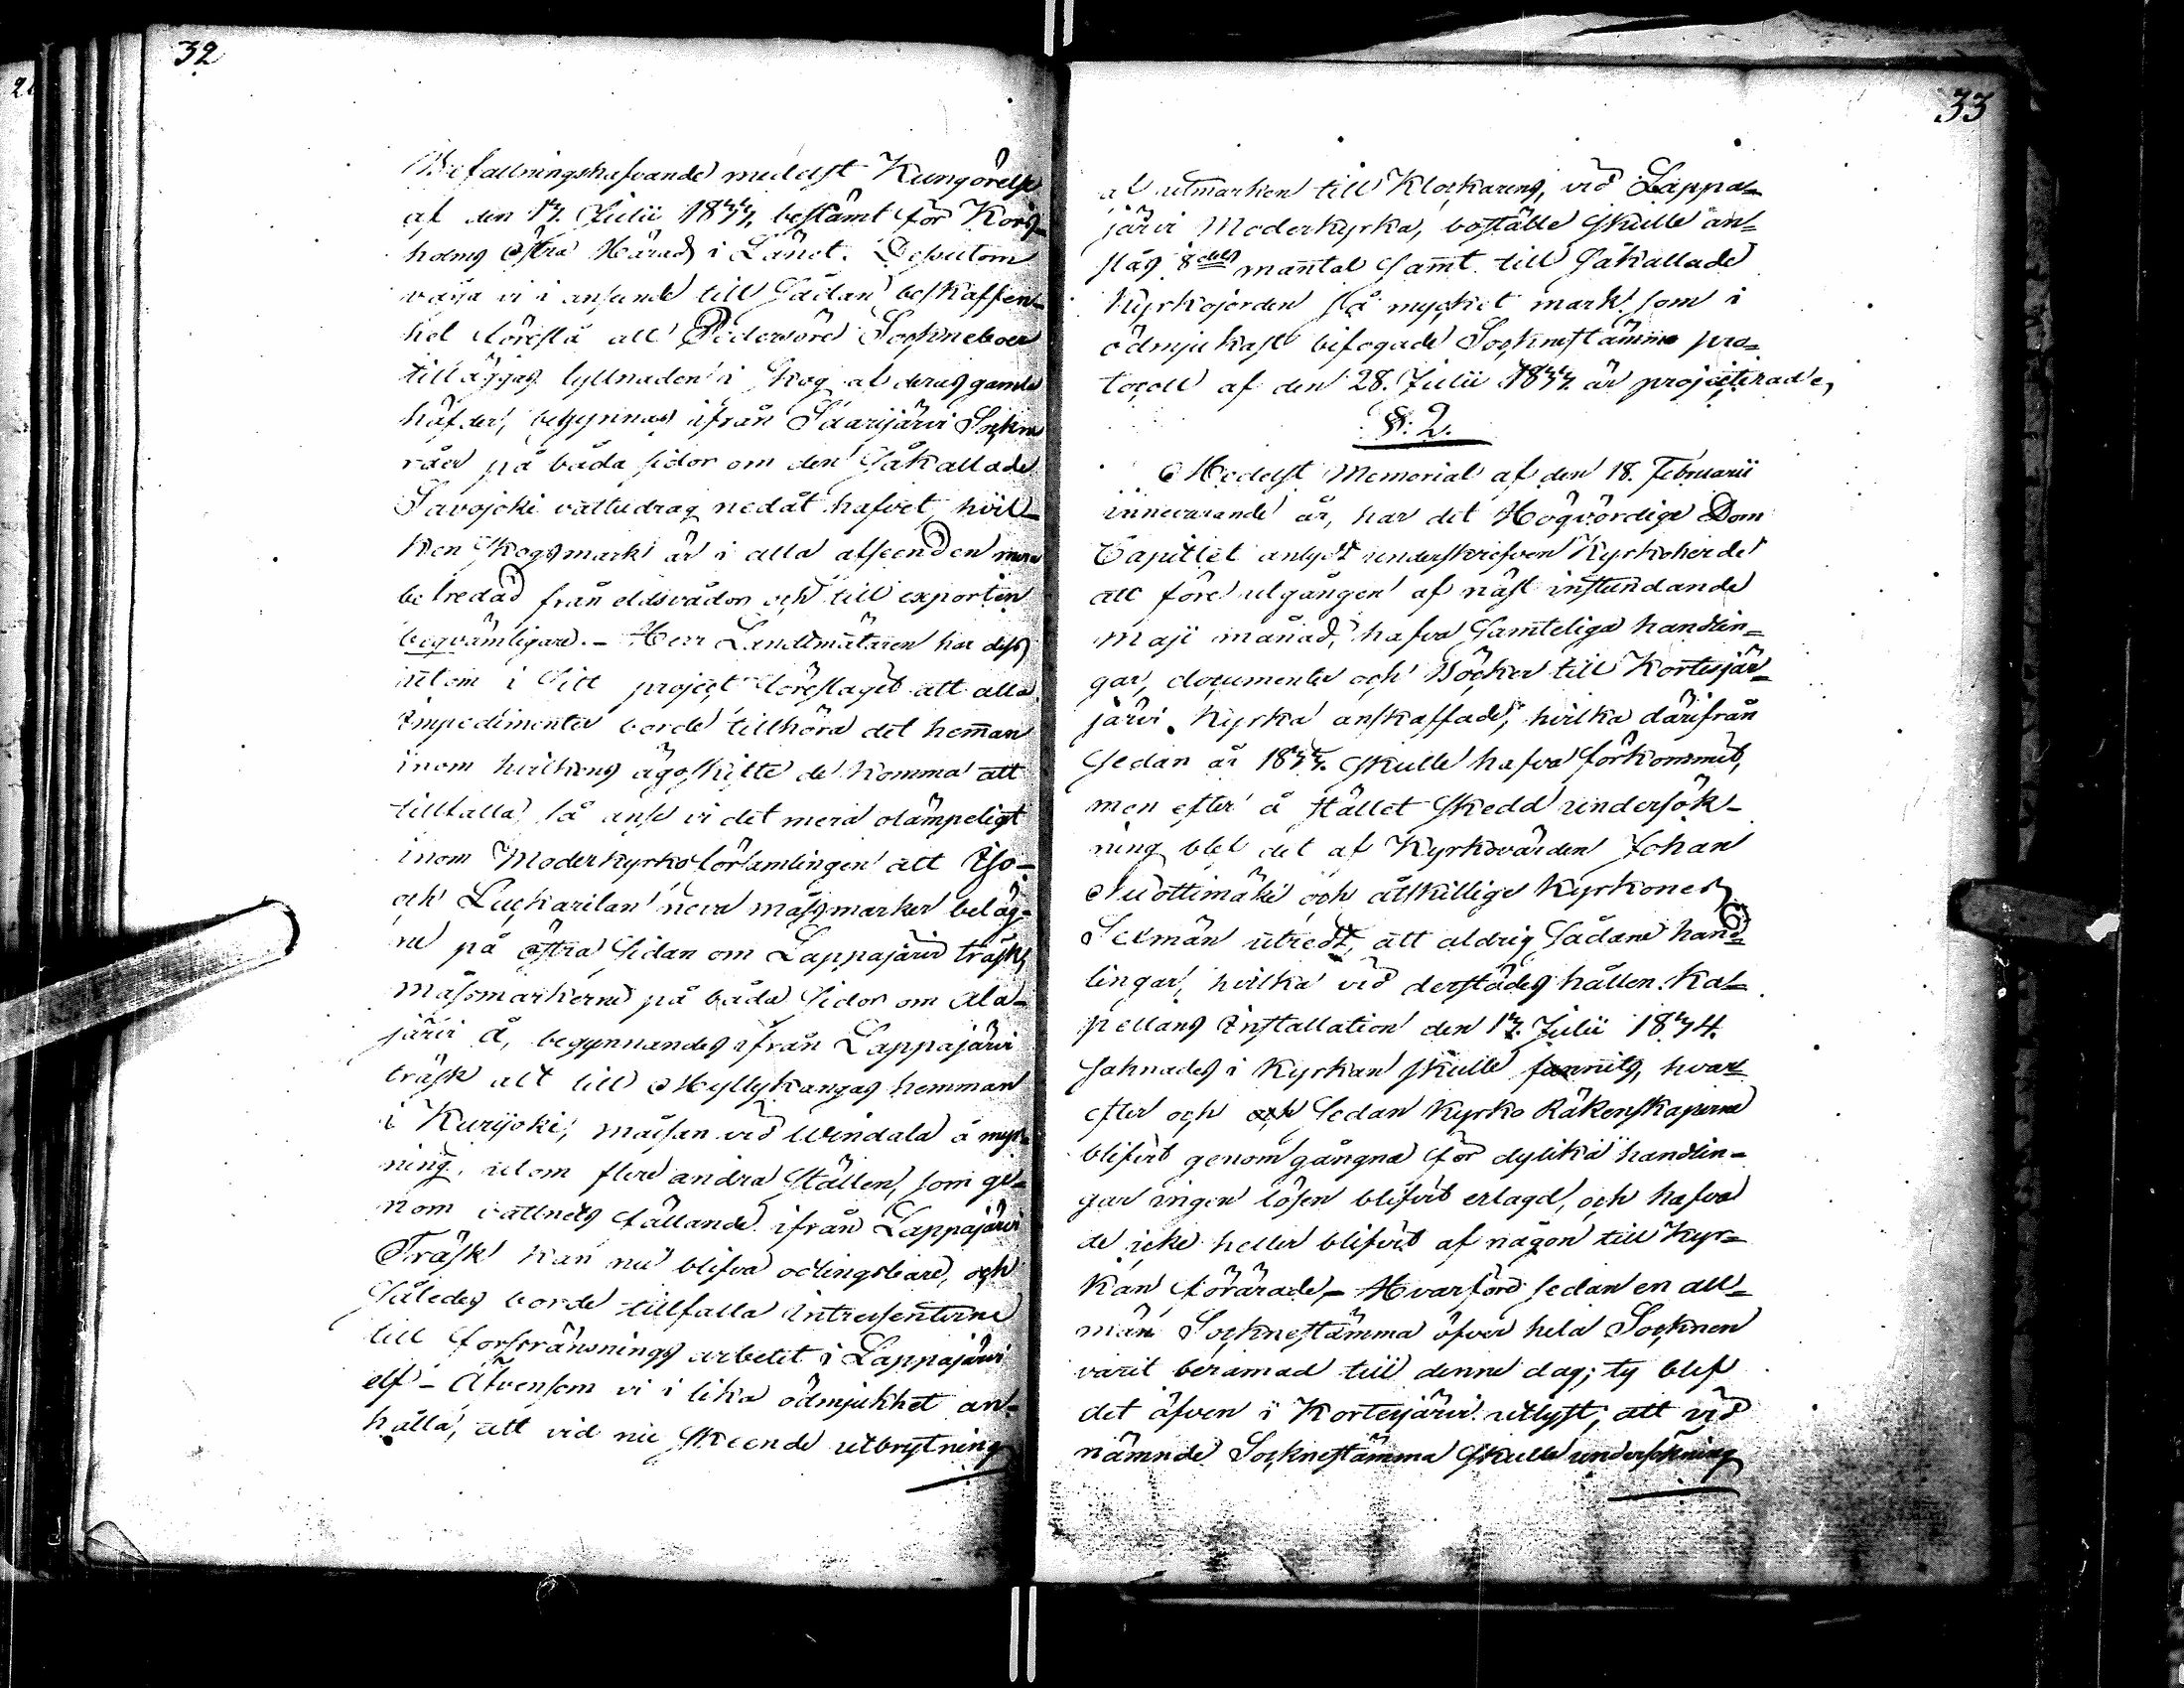 32
Befallningshafvande medelst Kungörelse
af den 17. Julii 1877, bestämt för Kors-
holms östra Härad i Länet. Desutom
våga vi i anseende till Sådan beskaffen-
het föreslå att Pedersöre Sockneboer
tilläggas fyllnaden i skog af deras gamla
häfder, begynnas ifrån Saarijärvi Sockne
råer på båda sidor om den Såkallade
Savojoki vattudrag nedåt hafvet, hvil-
ken Skogsmark är i alla afseenden mera
betredad från eldsvådor och till exporten
beqvämligare. - Herr Landtmätaren har dess
utom i Sitt project föreslagit att alla
Impedimenter borde tillhöra det hemman
inom hvilkens ägoskifte de komma att
tillfalla, så anse vi det mera olämpeligt
inom Moderkyrko församlingen att Iso-
och Luckarilan neva mässmarker beläg-
ne på östra Sidan om Lappajärvi träsk,
mässmarkerne på båda Sidor om Ala-
järvi å, begynnandes ifrån Lappajärvi
träsk alt till Myllykangas hemman
i Kurijoki, måssan vid Windala å myn-
ning, utom flere andra Ställen, som ge-
nom vattnets fällande ifrån Lappajärvi
Träsk kan nu blifva odlingsbare, och
Således borde tillfalla intressenterne
till forsrånsnings arbetet i Lappajärvi
elf - Äfvensom vi i lika ödmjukhet an-
hålla, att vid nu Skeende utbrytning
33
af utmarken till Klockarens, vid Lappa-
järvi Moderkyrka, boställe Skulle an-
slås 8dels mantal Samt till Såkallade
Kyrkojorden så mycket mark som i
ödmjukast bifogade Socknestämmo pro-
tocoll af den 28. Julii 1877. är projecterade,
§: 2.
Medelst Memorial af den 18. Februarii
innevarande år, har det Högvördige Dom
Capitlet anlydt underskrefven Kyrkoherde
att före utgången af näst instundande
Maji månad, hafva Samteliga handlin-
gar, documenter och Böcker till Kortesjär-
järvi Kyrka anskaffade, hvilka därifrån
Sedan år 1877. Skulle hafva förkommit,
men efter å Stället Skedd undersök-
ning blef det af Kyrkovärden Johan
Nuottimäki och åtskillige Kyrkones
Sexmän utredt, att aldrig Sådane hand-
lingar, hvilka vid derstädes hållen Ka-
pellans Installation den 17. Julii 1874.
Saknades i Kyrkan skulle funnits, hvar
efter och och Sedan Kyrko Räkenskaperne
blifvit genomgångna för dylika handlin-
gar ingen lösen blifvit erlagd, och hafva
de icke heller blifvit af någon till Kyr-
kan förärade, - Hvarföre sedan en all-
män Socknestämma öfver hela Socknen
varit beramad till denne dag; ty blef
det äfven i Kortesjärvi utlyst, att vid
nämnde Socknestämma Skulle undersökning